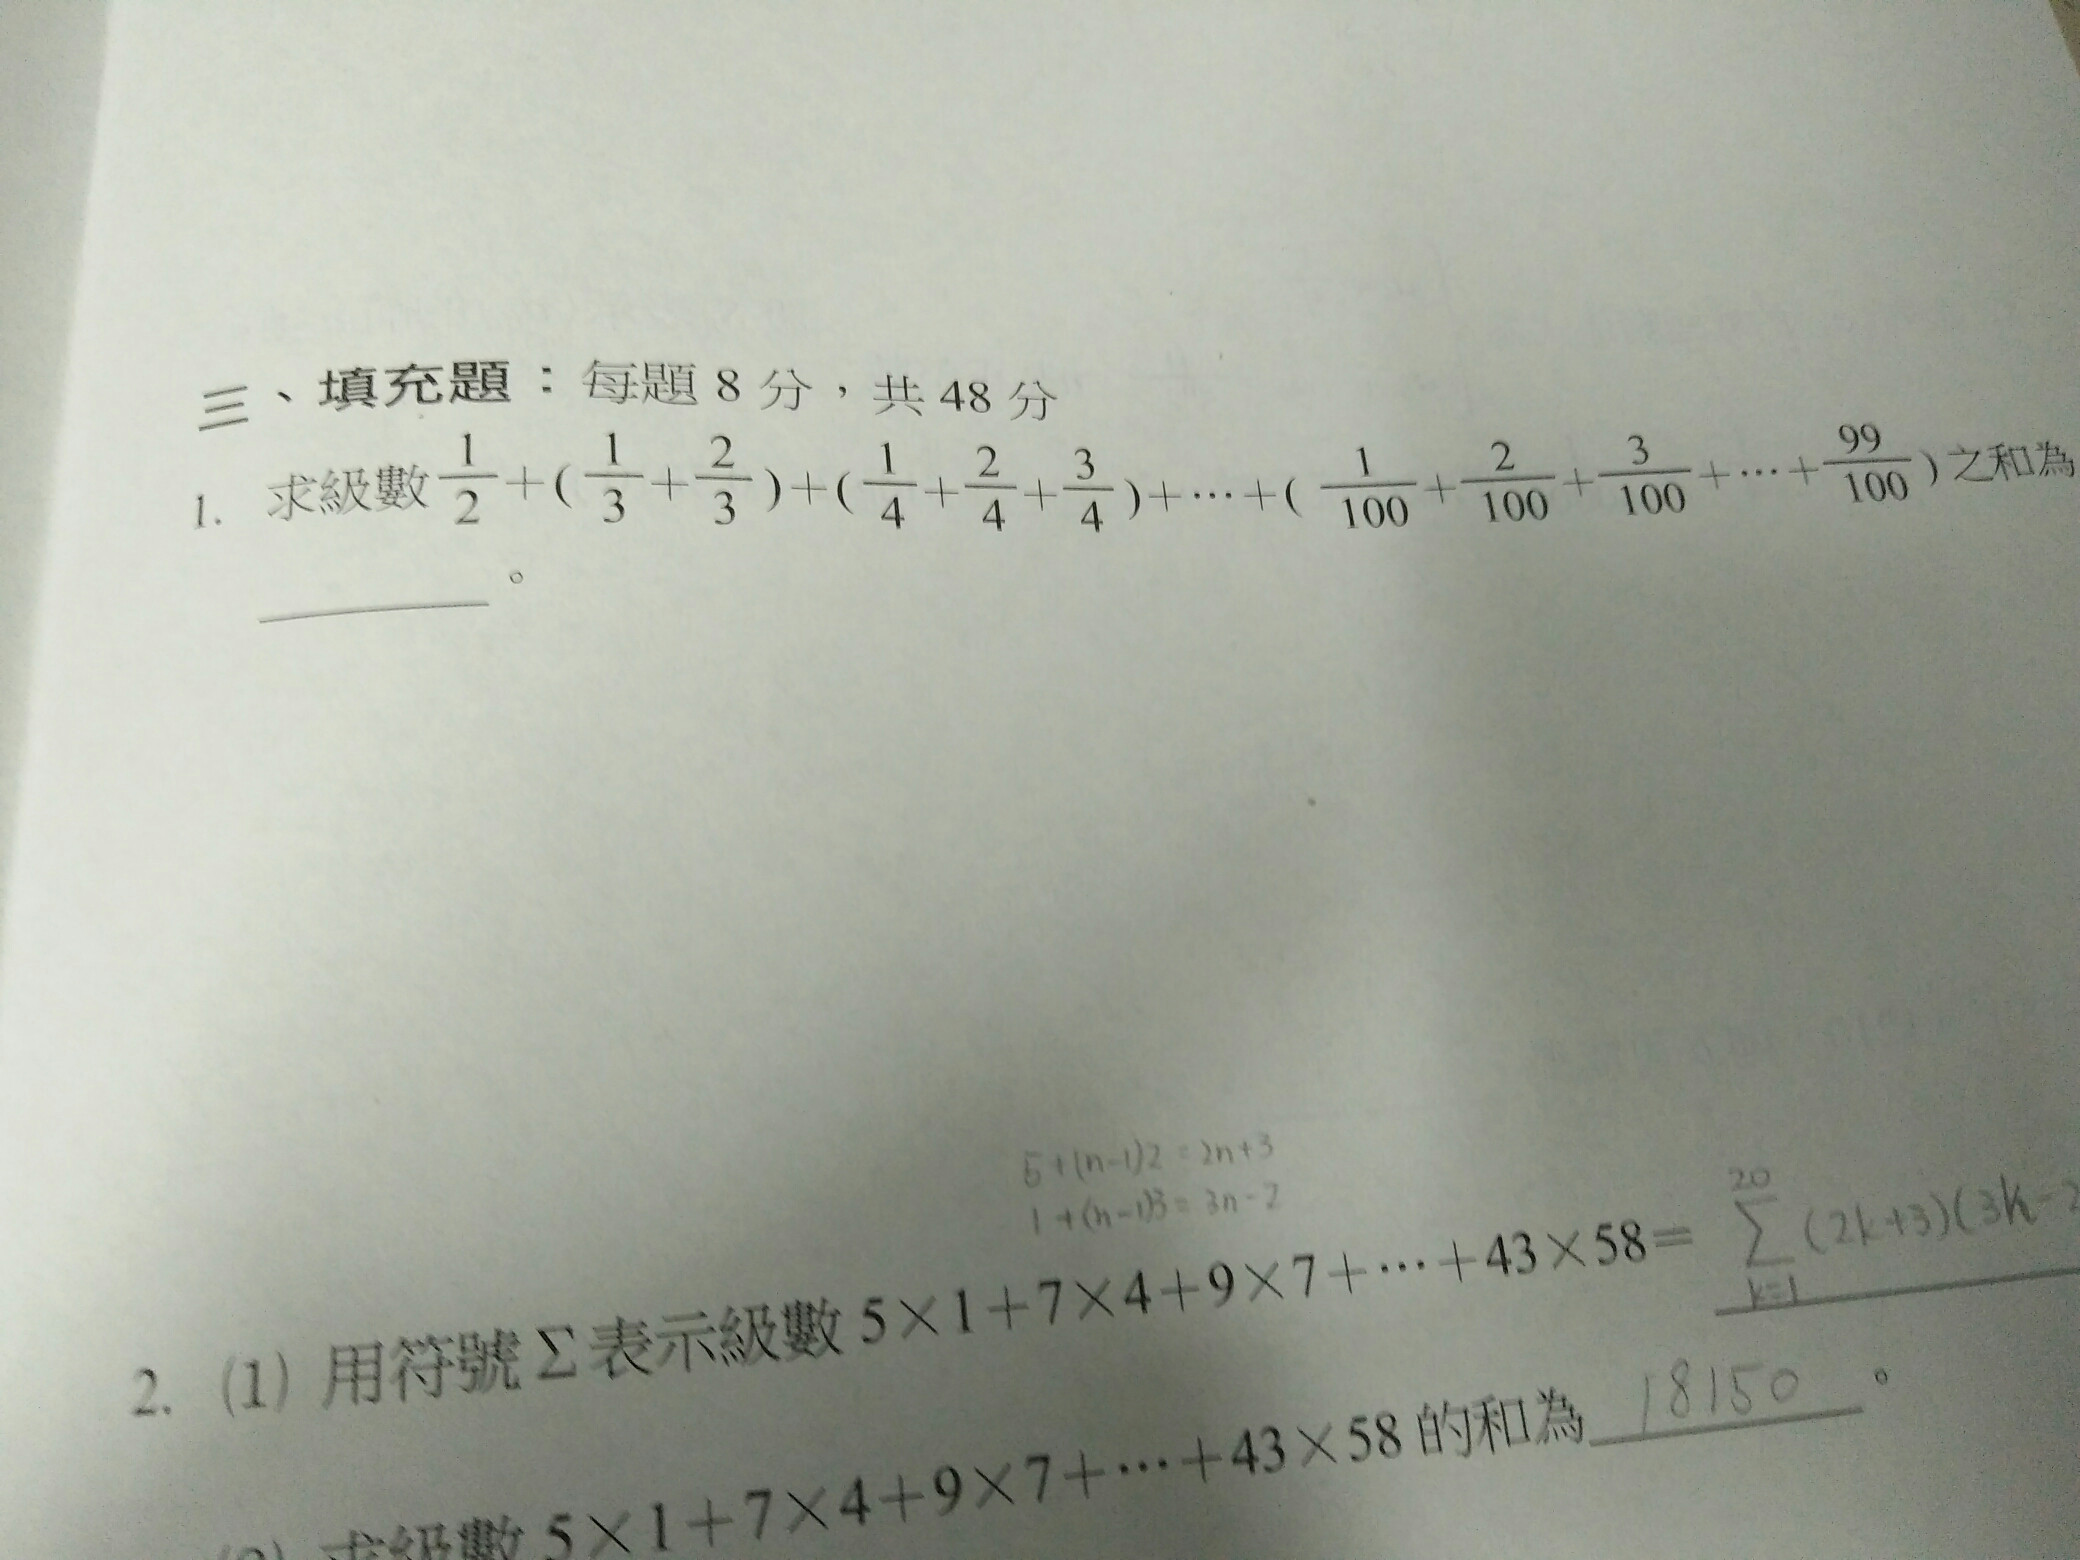 三、填充題：每題 8 分，共 48 分
1. 求級數 1/2 + ( 1/3 + 2/3 ) + ( 1/4 + 2/4 + 3/4 ) + ⋯ + ( 1/100 + 2/100 + 3/100 + ⋯ + 99/100 ) 之和為
______。
5+(n-1)2=2n+3
1+(n-1)3=3n-2
2. (1) 用符號 Σ 表示級數 5×1+7×4+9×7+⋯+43×58= Σ_{k=1}^{20} (2k+3)(3k-2
(2) 求級數 5×1+7×4+9×7+⋯+43×58 的和為 18150 。